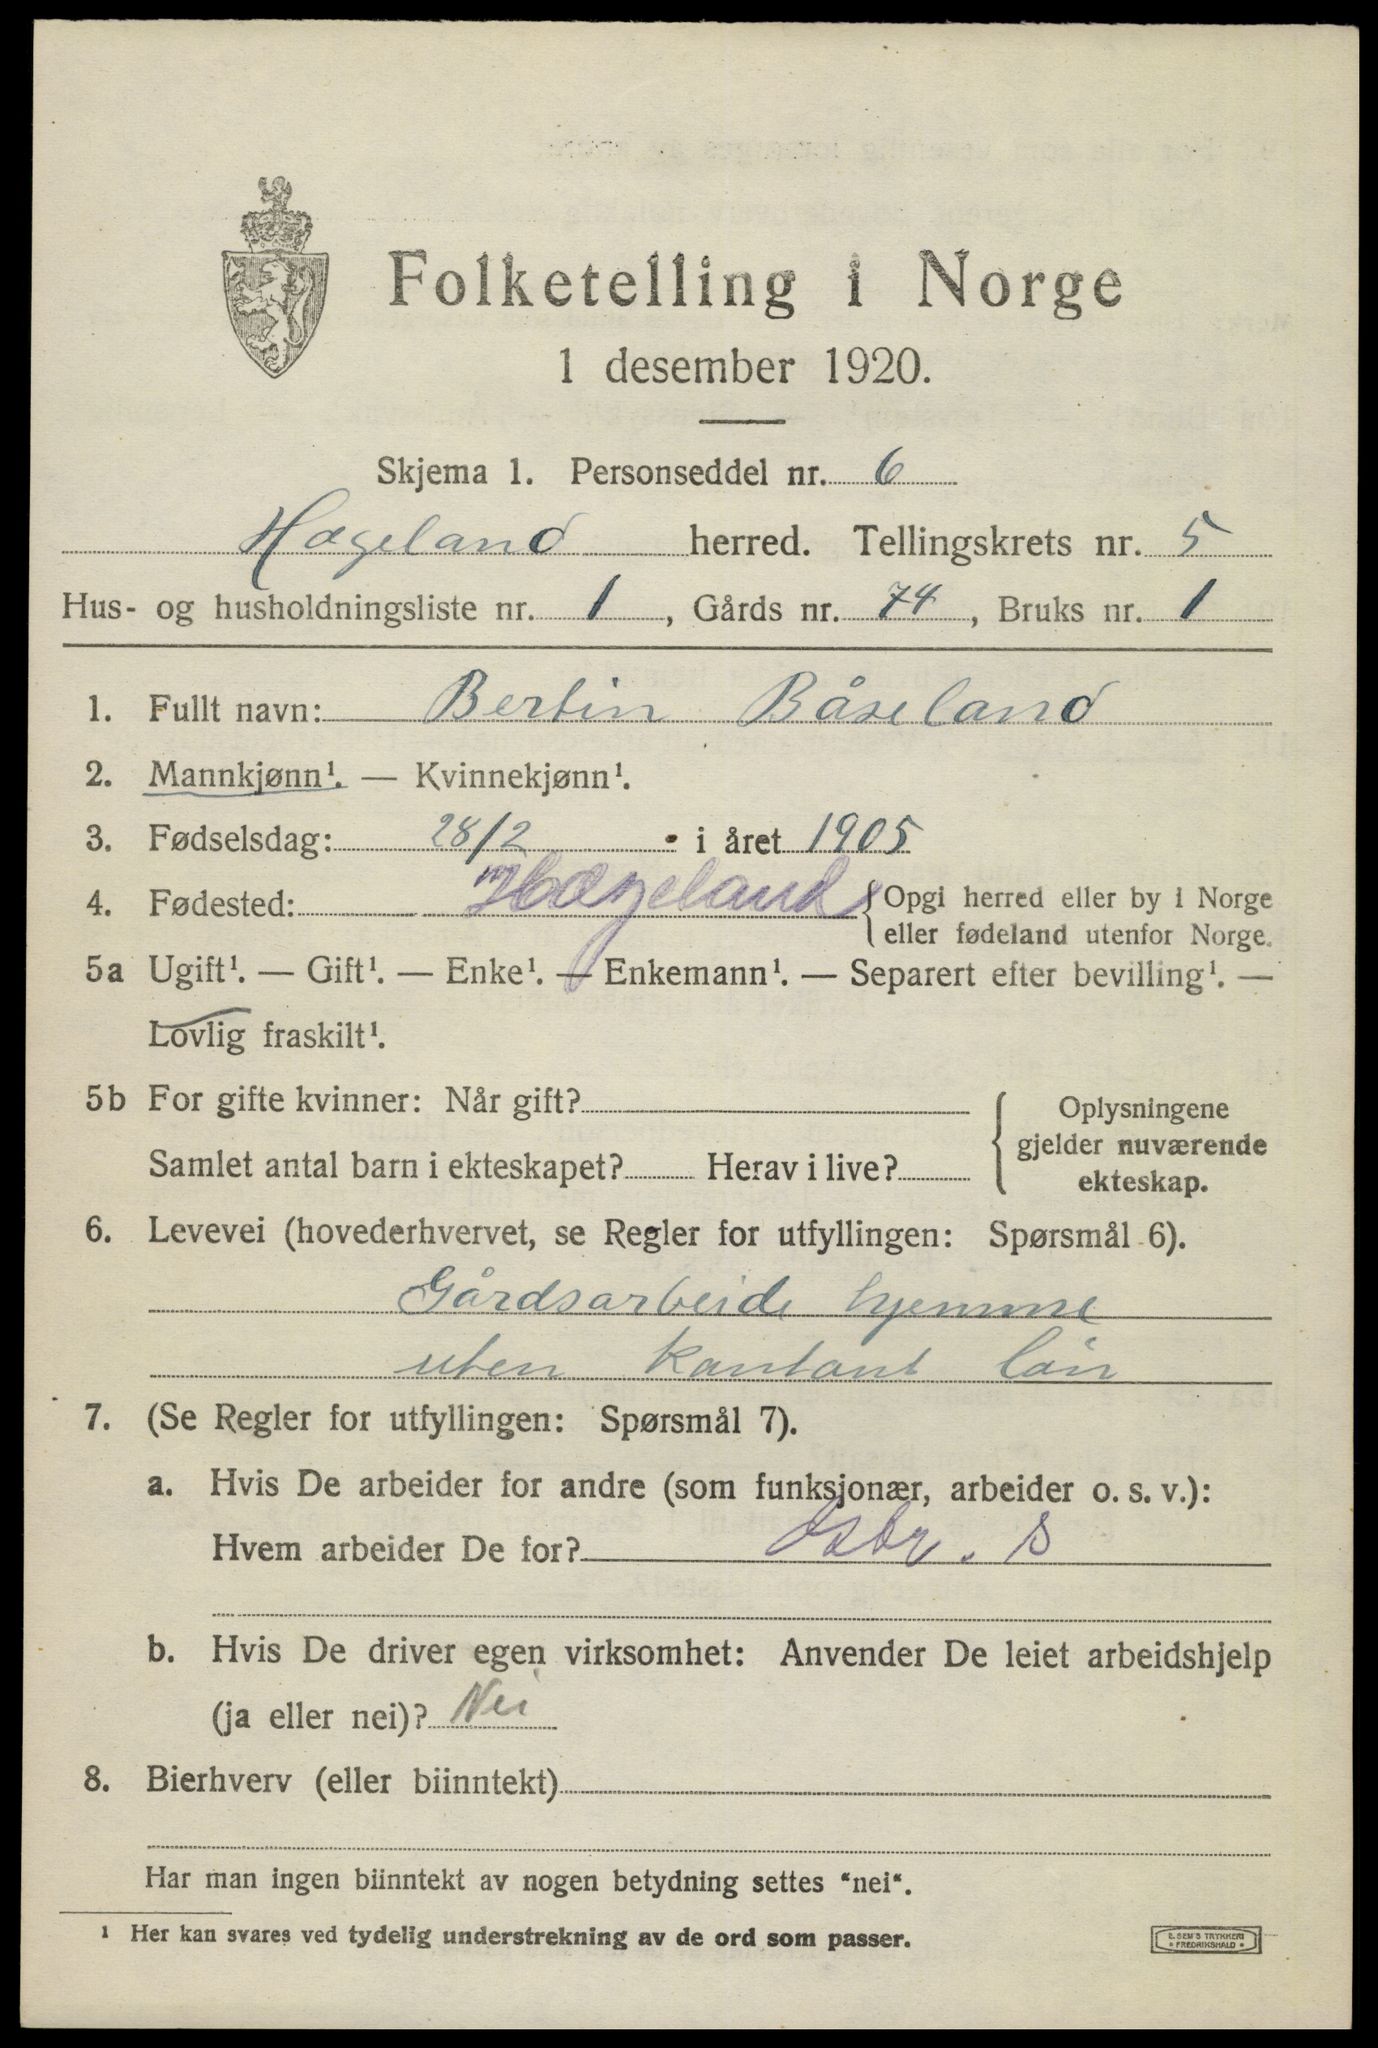 Folketelling i Norge
1 desember 1920.
Skjema 1. Personseddel nr. 6
Hægeland herred. Tellingskrets nr. 5
Hus- og husholdningsliste nr. 1, Gårds nr. 74, Bruks nr. 1
1. Fullt navn: Bertin Båseland
2. Mannkjønn¹. — Kvinnekjønn¹.
3. Fødselsdag: 28/2 i året 1905
4. Fødested: Hægeland { Opgi herred eller by i Norge
eller fødeland utenfor Norge.
5a Ugift¹. — Gift¹. — Enke¹. — Enkemann¹. — Separert efter bevilling¹. —
Lovlig fraskilt¹.
5b For gifte kvinner: Når gift? { Oplysningene
gjelder nuværende
Samlet antal barn i ekteskapet? Herav i live? ekteskap.
6. Levevei (hovederhvervet, se Regler for utfyllingen: Spørsmål 6).
Gårdsarbeide hjemme
uten kontant løn
7. (Se Regler for utfyllingen: Spørsmål 7).
a. Hvis De arbeider for andre (som funksjonær, arbeider o. s. v.):
Hvem arbeider De for?
b. Hvis De driver egen virksomhet: Anvender De leiet arbeidshjelp
(ja eller nei)? Nei
8. Bierhverv (eller biinntekt)
Har man ingen biinntekt av nogen betydning settes "nei".
¹ Her kan svares ved tydelig understrekning av de ord som passer.
E. SEM'S TRYKKERI
• FREDRIKSHALD •